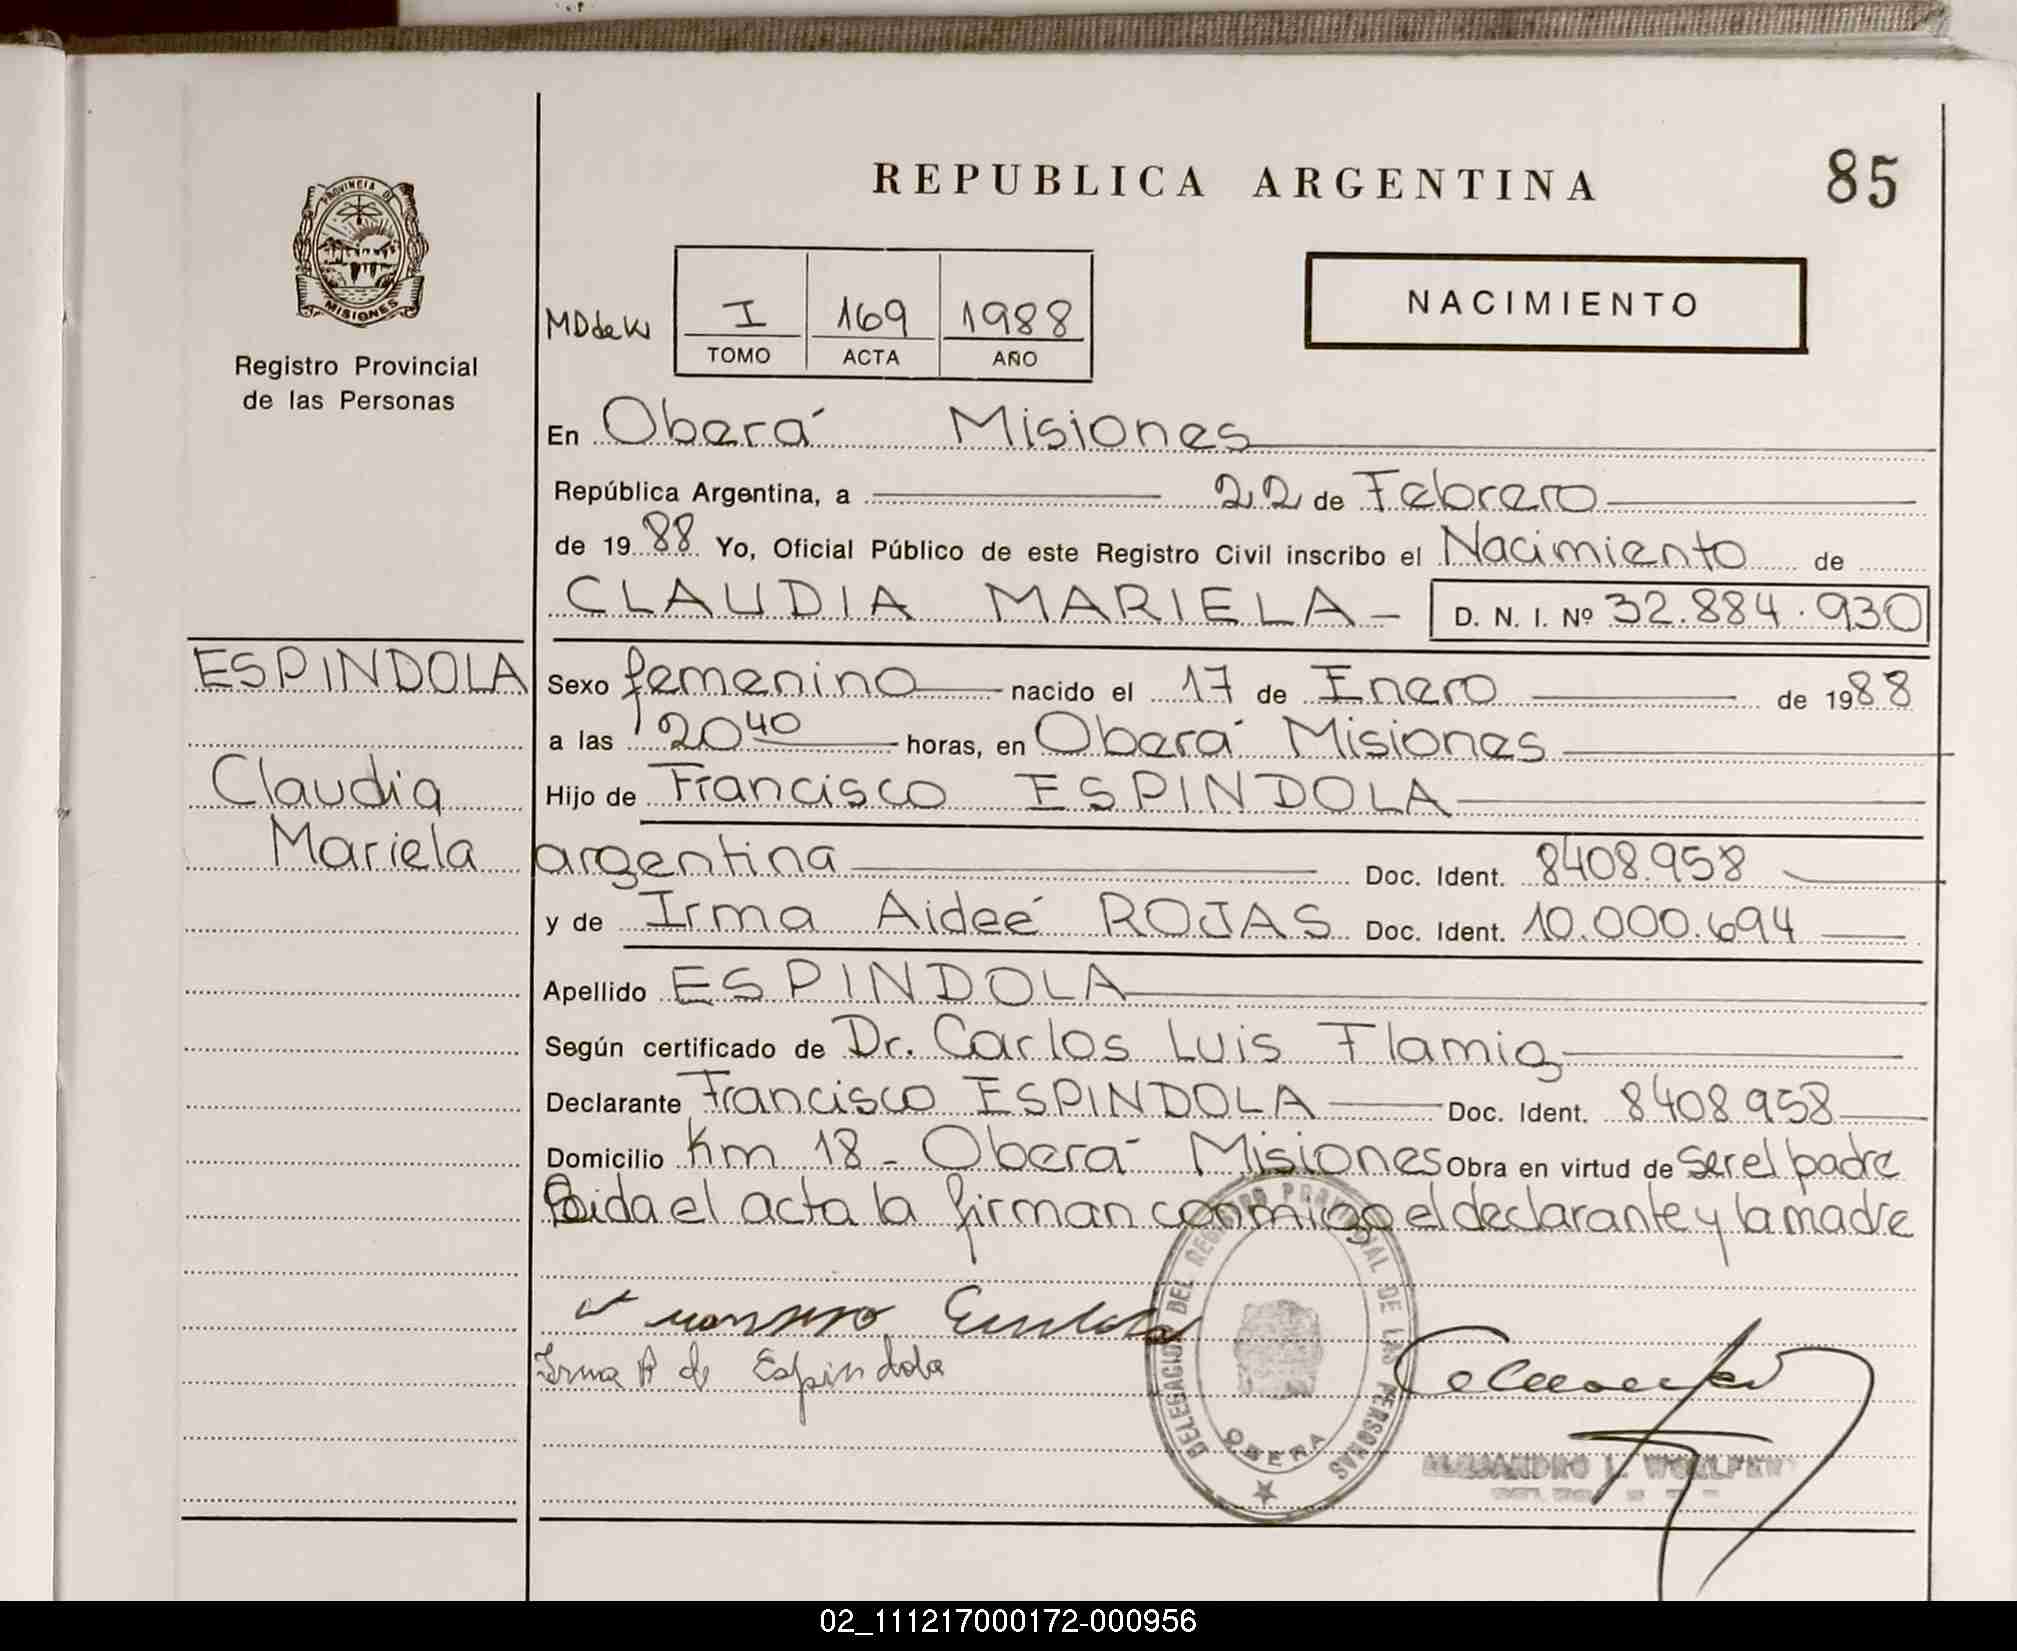 REPUBLICA ARGENTINA
85
PROVINCIA DE
MISIONES
Registro Provincial
de las Personas
MDdeW
I 169 1988
TOMO ACTA AÑO
NACIMIENTO
En Oberá Misiones
República Argentina, a 22 de Febrero
de 1988 Yo, Oficial Público de este Registro Civil inscribo el Nacimiento de
CLAUDIA MARIELA - D. N. I. Nº 32.884.930
ESPINDOLA
Claudia
Mariela
Sexo femenino nacido el 17 de Enero de 1988
a las 20 40 horas, en Oberá Misiones
Hijo de Francisco ESPINDOLA
argentina Doc. Ident. 8408.958
y de Irma Aideé ROJAS Doc. Ident. 10.000.694
Apellido ESPINDOLA
Según certificado de Dr. Carlos Luis Flamig
Declarante Francisco ESPINDOLA Doc. Ident. 8408.958
Domicilio Km 18 - Oberá Misiones Obra en virtud de ser el padre
Leida el acta la firman conmigo el declarante y la madre
Irma R de Espindola
DELEGACION DEL REGISTRO PROVINCIAL DE LAS PERSONAS
OBERA
ALEJANDRO L.
02_111217000172-000956